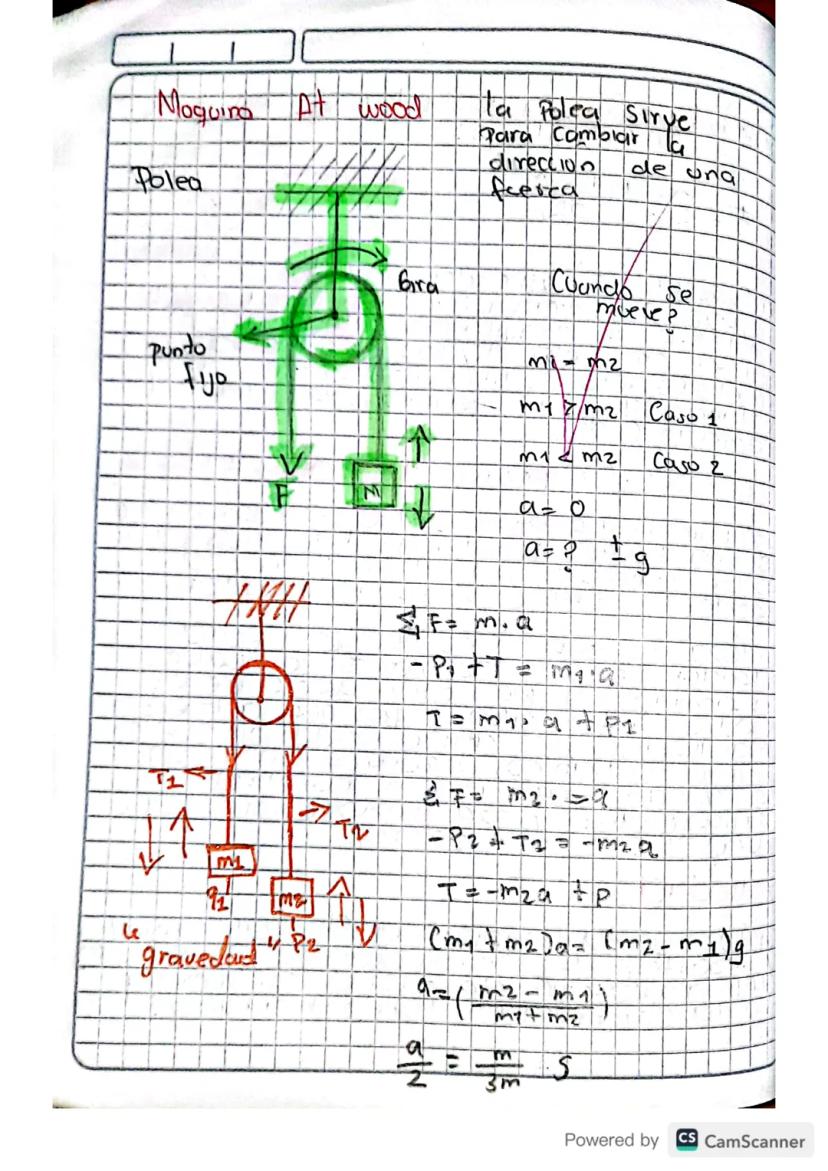 Maquina At wood
la Polea sirve
para cambiar la
direccion de una
fcerza
Polea
Gira
punto
fijo
F
M
Cuando se
mueve?
m1 = m2
m1 > m2 Caso 1
m1 < m2 Caso 2
a= 0
a= ? ± g
Σ F= m. a
- P1 + T = m1.a
T = m1. a + P1
T1
T2
m1
m2
P2
"gravedad"
Σ F= m2. =a
-P2 + T2 = -m2 a
T = -m2a + P
(m1 + m2)a= (m2 - m1)g
a=(m2 - m1 / m1+m2)
a/2 = m/3m .
Powered by CS CamScanner